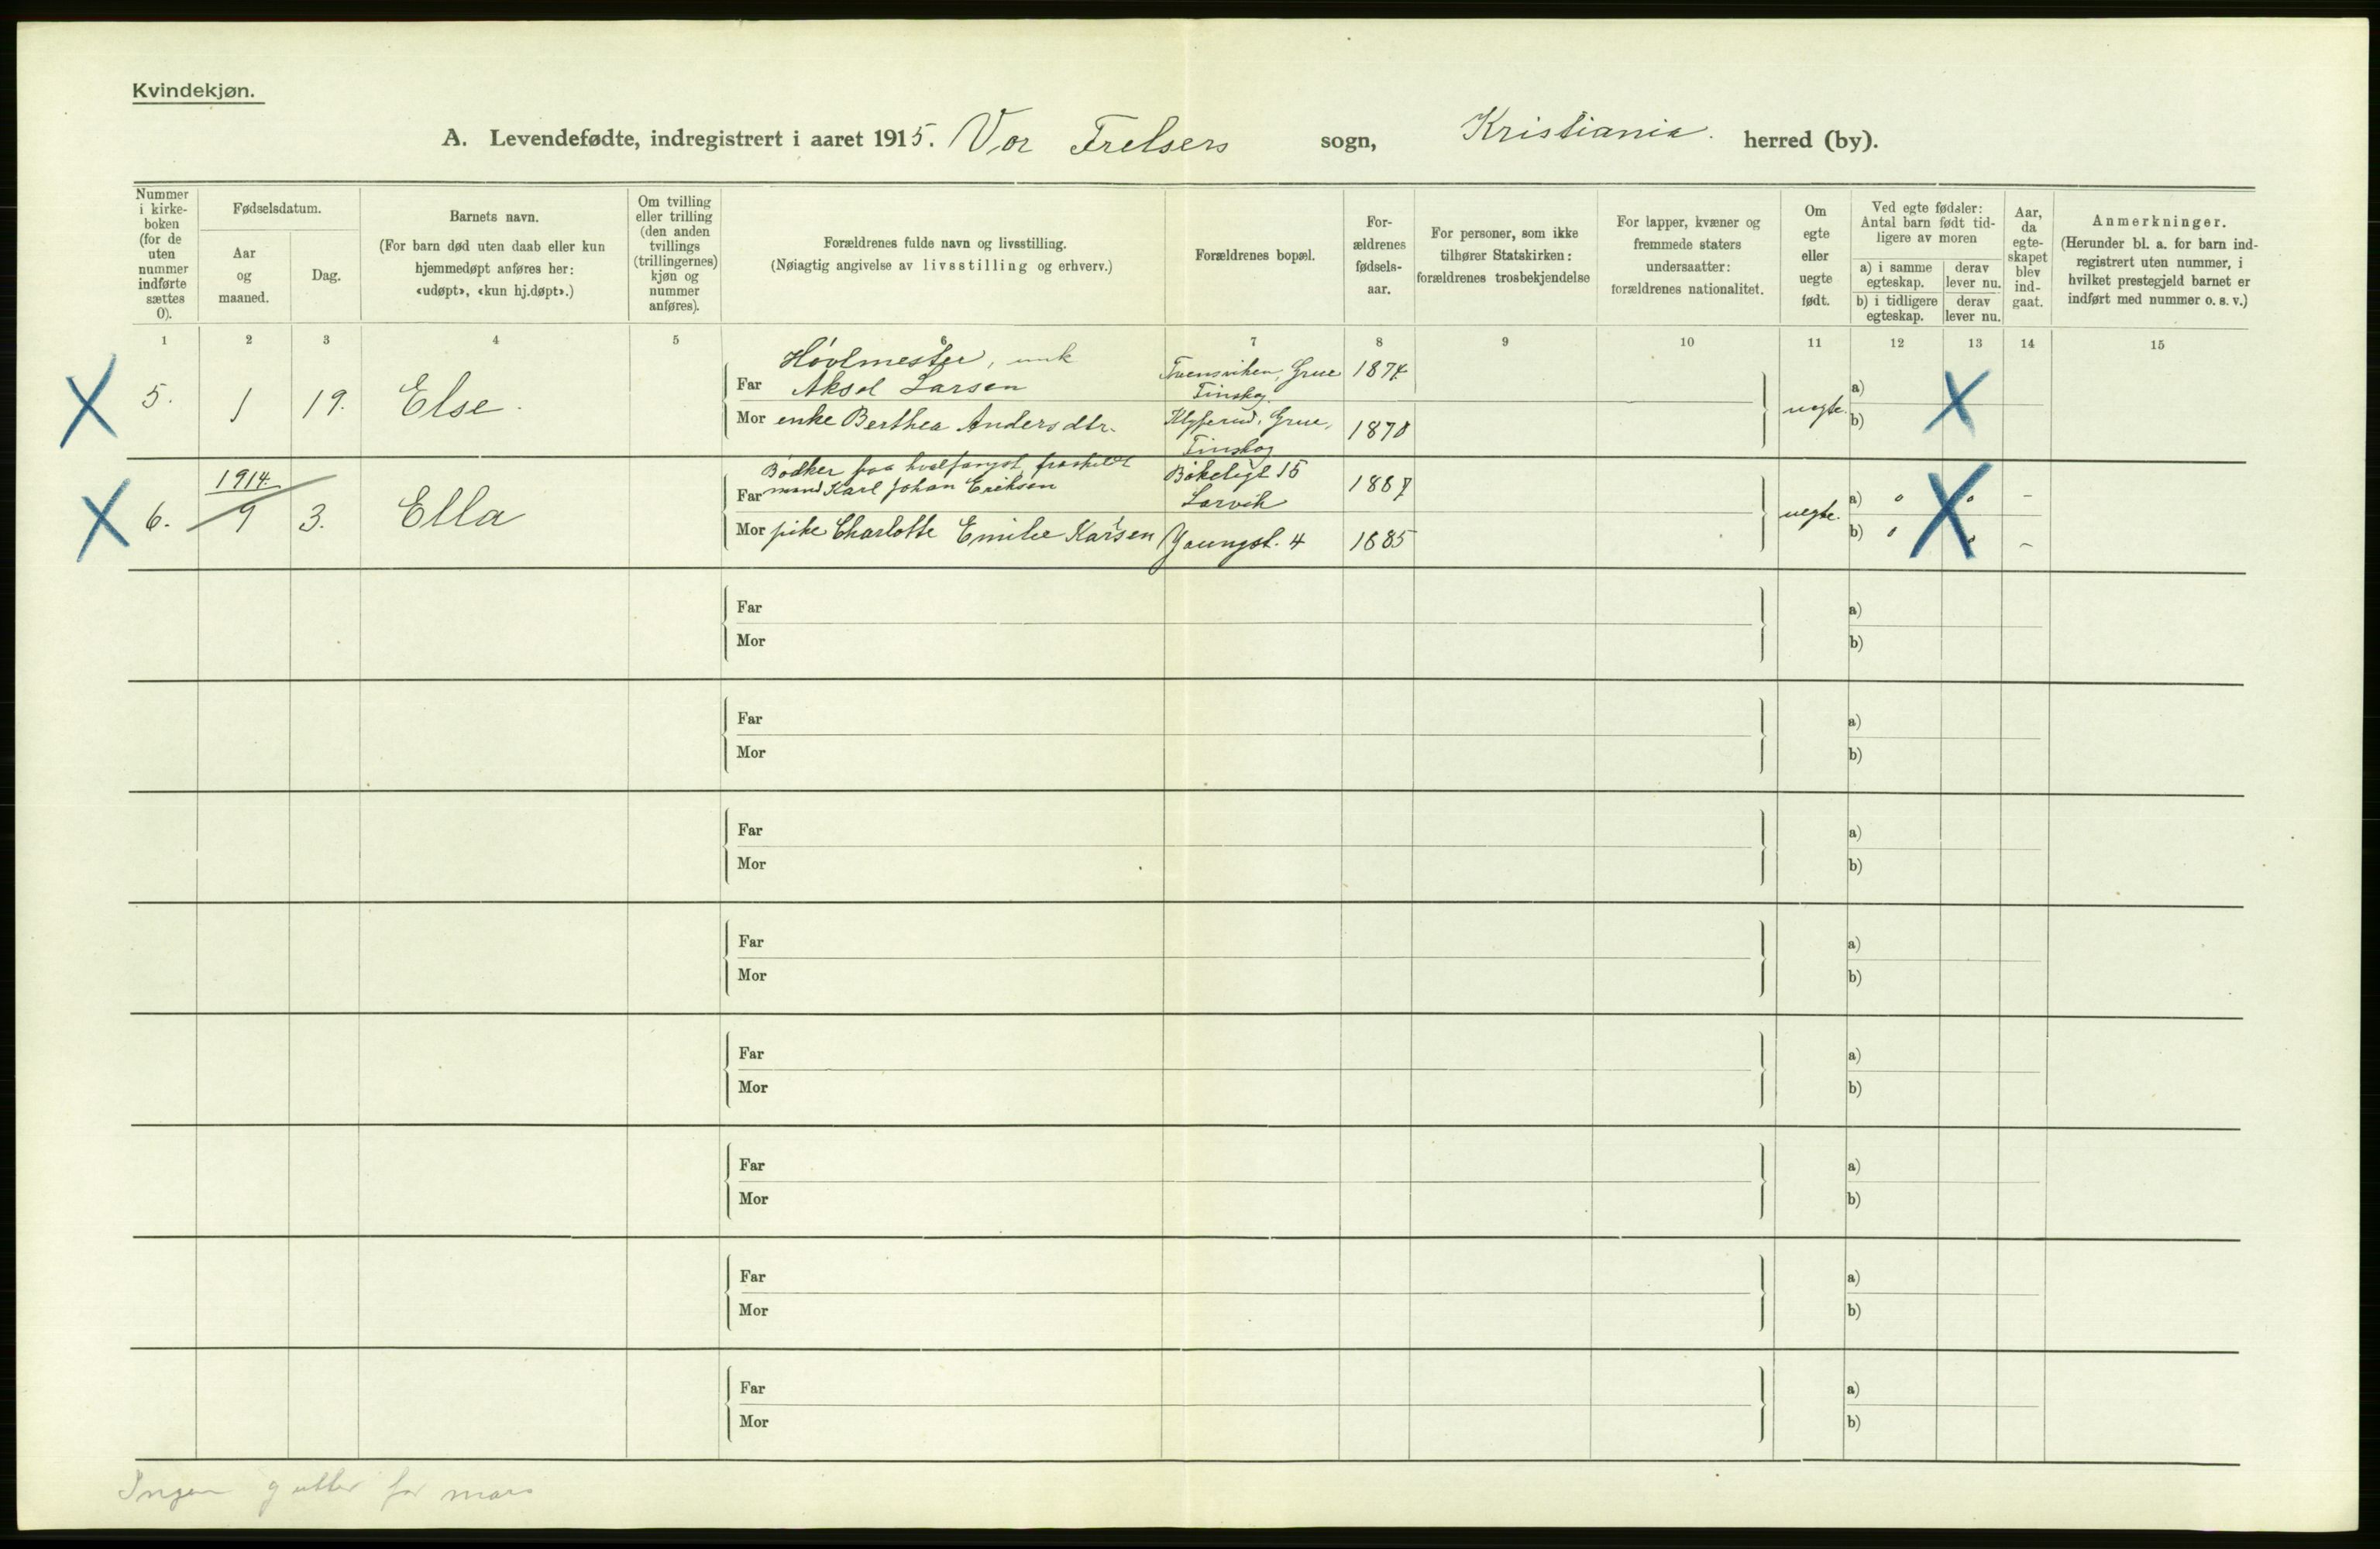 Kvindekjøn.
A. Levendefødte, indregistrert i aaret 1915. Vor Frelsers sogn, Kristiania. herred (by).
Nummer i kirke- boken (for de uten nummer indførte sættes 0).
Fødselsdatum.
Aar og maaned.
Dag.
Barnets navn.
(For barn død uten daab eller kun hjemmedøpt anføres her: «udøpt», «kun hj.døpt».)
Om tvilling eller trilling (den anden tvillings (trillingernes) kjøn og nummer anføres).
Forældrenes fulde navn og livsstilling.
(Nøiagtig angivelse av livsstilling og erhverv.)
Forældrenes bopæl.
For- ældrenes fødsels- aar.
For personer, som ikke tilhører Statskirken: forældrenes trosbekjendelse
For lapper, kvæner og fremmede staters undersaatter: forældrenes nationalitet.
Om egte eller uegte født.
Ved egte fødsler: Antal barn født tid- ligere av moren
a) i samme egteskap.
derav lever nu.
b) i tidligere egteskap.
derav lever nu.
Aar, da egte- skapet blev ind- gaat.
Anmerkninger.
(Herunder bl. a. for barn ind- registrert uten nummer, i hvilket prestegjeld barnet er indført med nummer o. s. v.)
1 2 3 4 5 6 7 8 9 10 11 12 13 14 15
X 5. 1 19. Else.
Høvlmester, unk
Far Aksel Larsen
Grue Finskog. 1874
Mor enke Berthea Andersdtr.
Grue, Finskog 1870
uegte. a) b) X
X 6. 1914. 9 3. Ella
Bødker paa hvalfangst, fraskilt
Far mand Karl Johan Eriksen
Bøkeligt 15 Larvik 1887
Mor pike Charlotte Emilie Karlsen Youngst. 4 1885
uegte. a) 0 0 – b) 0 0 – X
Far a)
Mor b)
Far a)
Mor b)
Far a)
Mor b)
Far a)
Mor b)
Far a)
Mor b)
Far a)
Mor b)
Far a)
Mor b)
Far a)
Mor b)
Ingen gutter for mars